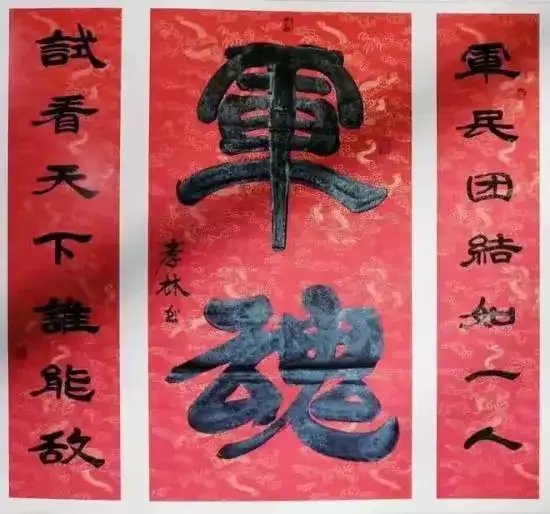 軍民团結如一人
軍魂
孝林书
試看天下誰能敌